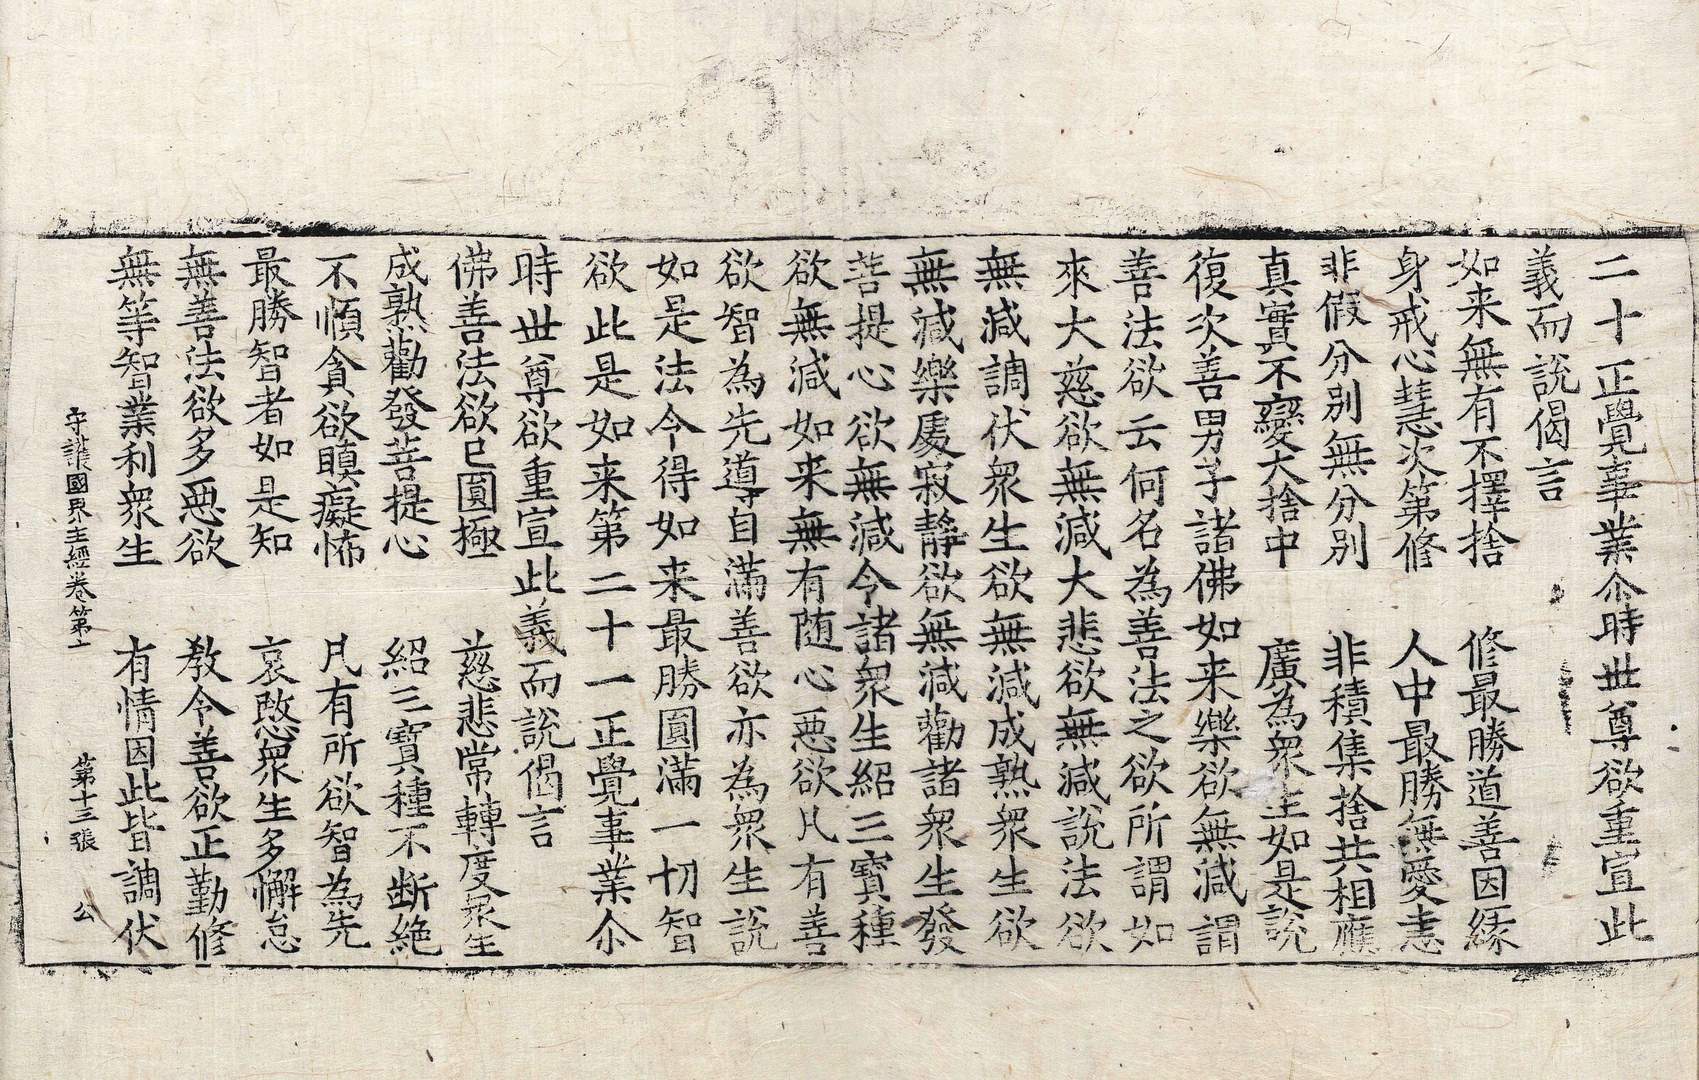 二十正覺事業尒時世尊欲重宣此
義而說偈言
如来無有不擇捨　修最勝道善因緣
身戒心慧次第修　人中最勝無愛恚
非假分別無分別　非積集捨共相應
真實不變大捨中　廣為衆生如是說
復次善男子諸佛如来樂欲無減謂
善法欲云何名為善法之欲所謂如
來大慈欲無減大悲欲無減說法欲
無減調伏衆生欲無減成熟衆生欲
無減樂處寂靜欲無減勸諸衆生發
菩提心欲無減令諸衆生紹三寳種
欲無減如来無有随心惡欲凡有善
欲智為先導自滿善欲亦為衆生說
如是法令得如来最勝圓滿一切智
欲此是如来第二十一正覺事業尒
時世尊欲重宣此義而說偈言
佛善法欲已圓極　慈悲常轉度衆生
成熟勸發菩提心　紹三寳種不断絶
不順貪欲瞋癡怖　凡有所欲智為先
最勝智者如是知　哀愍衆生多懈怠
無善法欲多惡欲　教令善欲正勤修
無等智業利衆生　有情因此皆調伏
守護國界主經卷第十　第十三張　公